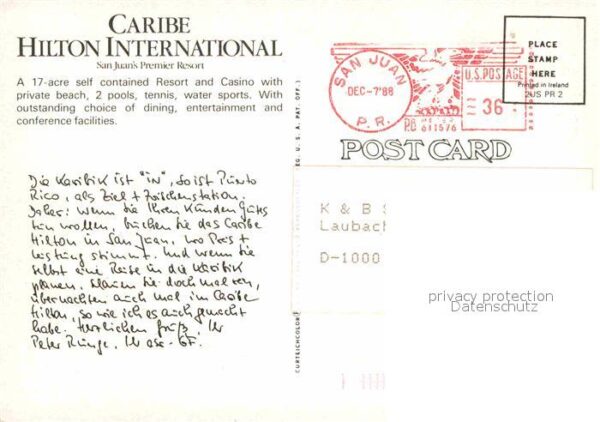 CARIBE
HILTON INTERNATIONAL
San Juan's Premier Resort
A 17-acre self contained Resort and Casino with
private beach, 2 pools, tennis, water sports. With
outstanding choice of dining, entertainment and
conference facilities.
SAN JUAN
DEC-7'88
P.R.
U.S. POSTAGE
36
P.B. METER
611576
PLACE
STAMP
HERE
Printed in Ireland
2US PR 2
POST CARD
Die Karibik ist "IN", so ist Puerto
Rico, als Ziel + Zwischenstation.
Daher: wenn Sie Ihren Kunden Gutes
tun wollen, buchen Sie das Caribe
Hilton in San Juan, wo Preis +
Leistung stimmt. Und wenn Sie
selbst eine Reise in die Karibik
planen, schauen Sie doch mal rein,
übernachten auch mal im Caribe
Hilton, so wie ich es auch gemacht
habe. Herzlichen Gruß, Ihr
Peter Runge,
K & B S
Laubach
D-1000
privacy protection
Datenschutz
EG. U. S. PAT. OFF.)
CURTEICHCOLOR